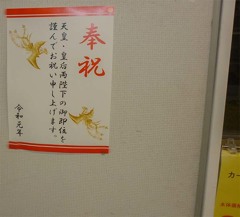 奉祝
天皇・皇后両陛下の御即位を
謹んでお祝い申し上げます。
令和元年
カー